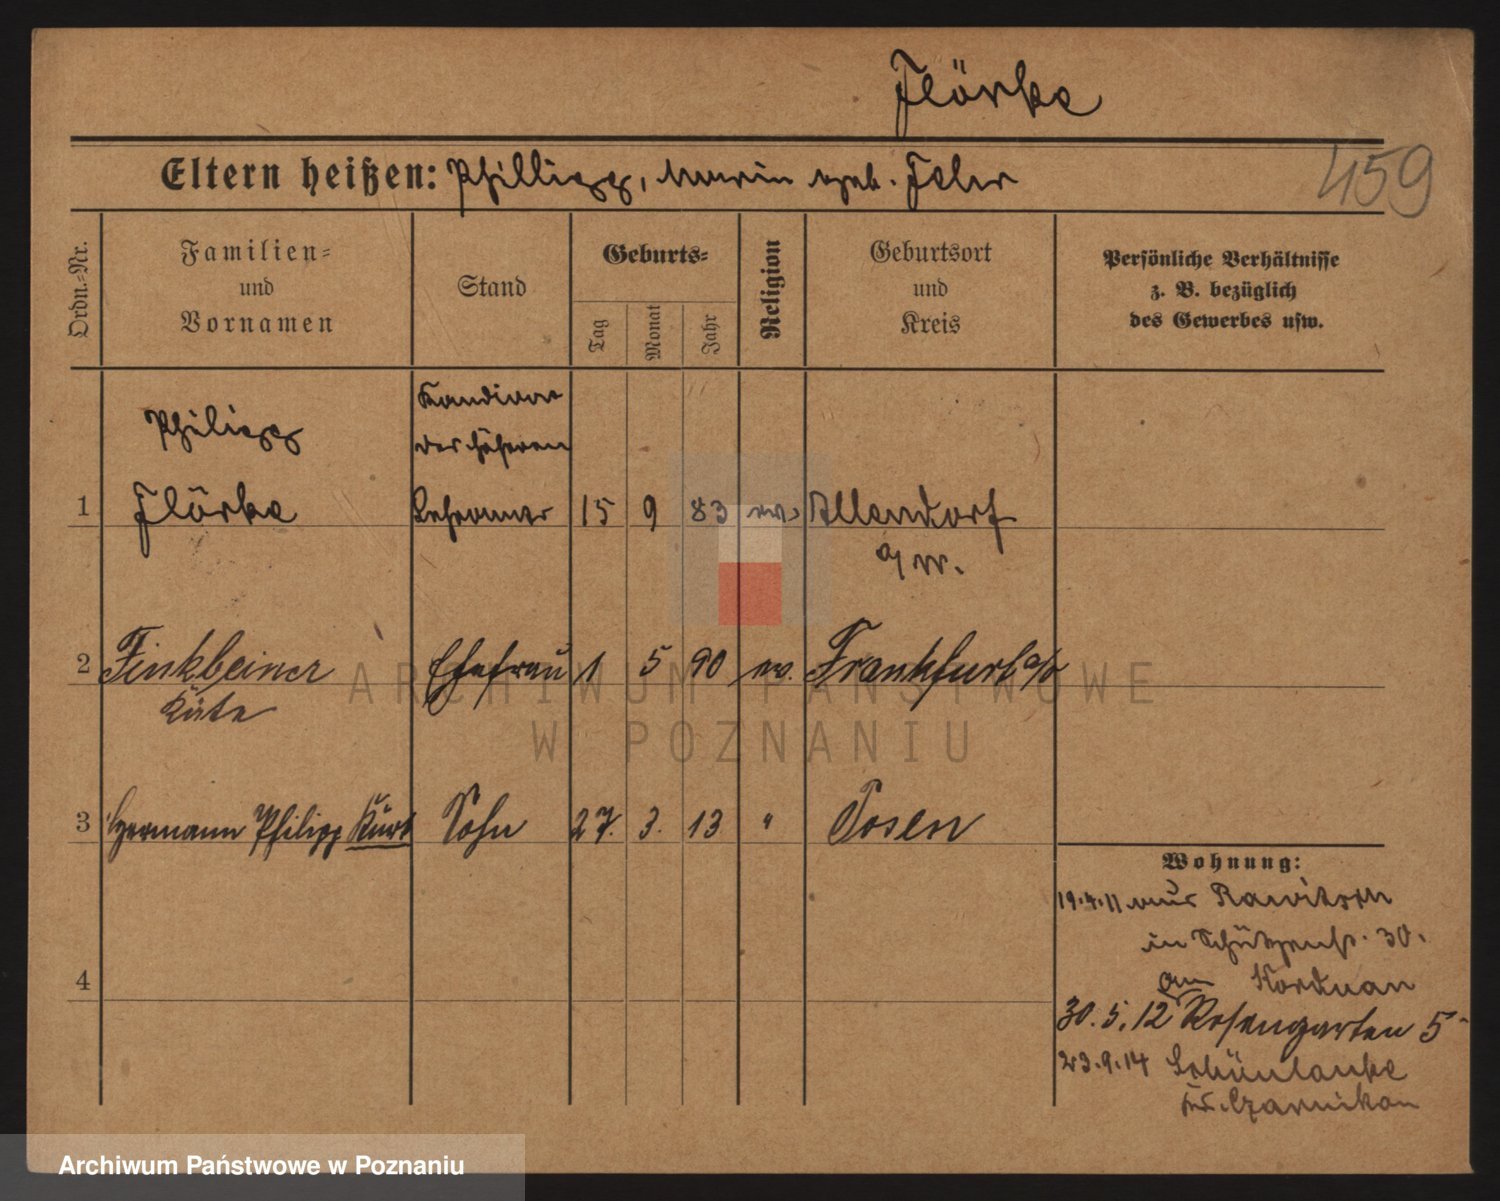 Flörke
459
Eltern heißen: Philipp, Marie geb. Fehr
Ordn.-Nr.
Familien-
und
Vornamen
Stand
Geburts-
Tag
Monat
Jahr
Religion
Geburtsort
und
Kreis
Persönliche Verhältnisse
z. B. bezüglich
des Gewerbes usw.
Philipp
Kandidat
des höheren
1 Flörke Lehramts 15 9 83 ev. Allendorf
a/W.
2 Finkbeiner Ehefrau 1 5 90 ev. Frankfurt a/O
Käte
3 Hermann Philipp Kurt Sohn 27. 3. 13 " Posen
4
Wohnung:
19.4.11 aus Rawitsch
in Schützenstr. 30.
Korduan
30.5.12 Rosengarten 5
23.9.14 Schönlanke
Kr. Czarnikau
ARCHIWUM PAŃSTWOWE
W POZNANIU
Archiwum Państwowe w Poznaniu